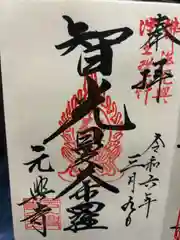 奉拝
令和六年
三月九日
智光曼荼羅
元興寺